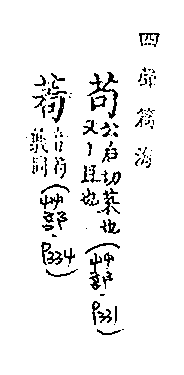 四聲篇海
茍公后切菜也
又丨且也(艸部·P331)
蒟音苟
義同(艸部·P334)